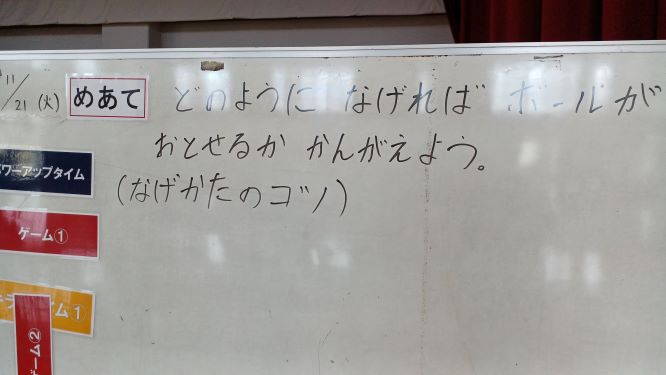 11/21 (火) めあて どのように なげれば ボールが
おとせるか かんがえよう。
(なげかたのコツ)
パワーアップタイム
ゲーム①
ム1
ゲーム②